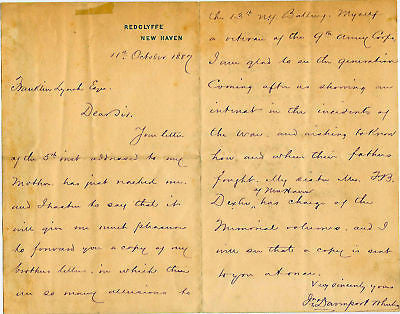 REDGLYFFE
NEW HAVEN
11th October 1887
Franklin Lynch Esqr.
Dear Sir.
Your letter
of the 5th inst addressed to my
Mother has just reached me.
and I hasten to say that it
will give me much pleasure
to forward you a copy of my
brothers letters. in which there
are so many allusions to
the 13th NY. Battery. Myself
a veteran of the 9th Army Corps
I am glad to see the generation
Coming after us showing an
interest in the incidents of
the War. and wishing to know
how and when their fathers
fought. My sister Mrs. F B.
of New Haven
Dexter, has charge of the
Memorial volumes. and I
will see that a copy is sent
to you at once.
Very sincerely yours
Davenport Wheeler